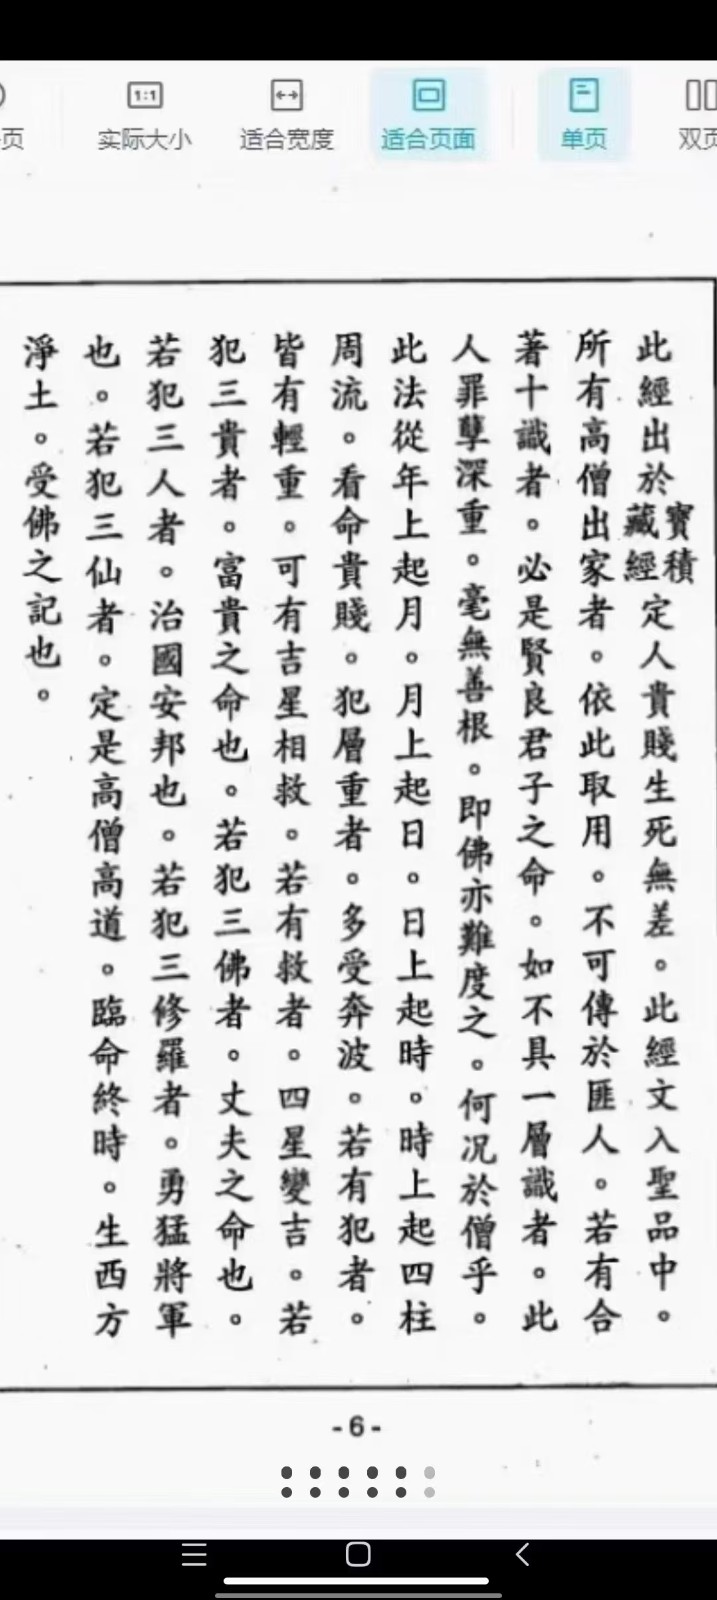 页
实际大小
适合宽度
适合页面
单页
双页
此經出於寶積藏經定人貴賤生死無差。此經文入聖品中。
所有高僧出家者。依此取用。不可傳於匪人。若有合
著十識者。必是賢良君子之命。如不具一層識者。此
人罪孽深重。毫無善根。即佛亦難度之。何況於僧乎。
此法從年上起月。月上起日。日上起時。時上起四柱
周流。看命貴賤。犯層重者。多受奔波。若有犯者。
皆有輕重。可有吉星相救。若有救者。四星變吉。若
犯三貴者。富貴之命也。若犯三佛者。丈夫之命也。
若犯三人者。治國安邦也。若犯三修羅者。勇猛將軍
也。若犯三仙者。定是高僧高道。臨命終時。生西方
淨土。受佛之記也。
-6-